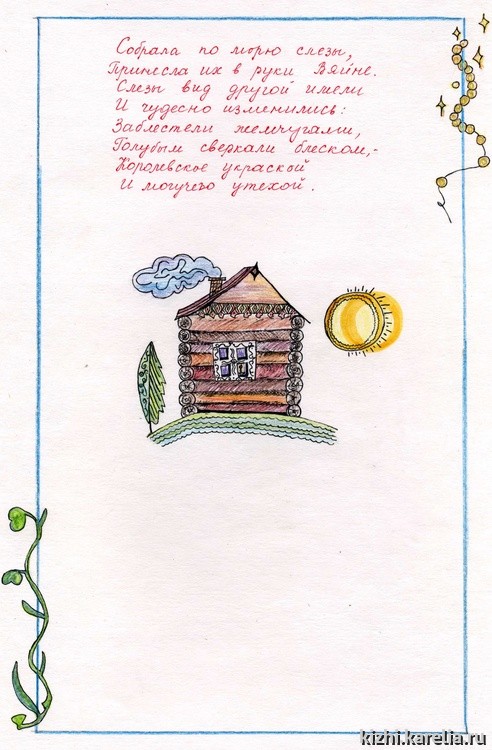 Собрала по морю слезы,
Принесла их в руки Вяйне.
Слезы вид другой имели
И чудесно изменились:
Заблестели жемчугами,
Голубым сверкали блеском,-
Королевское украской
И могучего утехой.
kizhi.karelia.ru